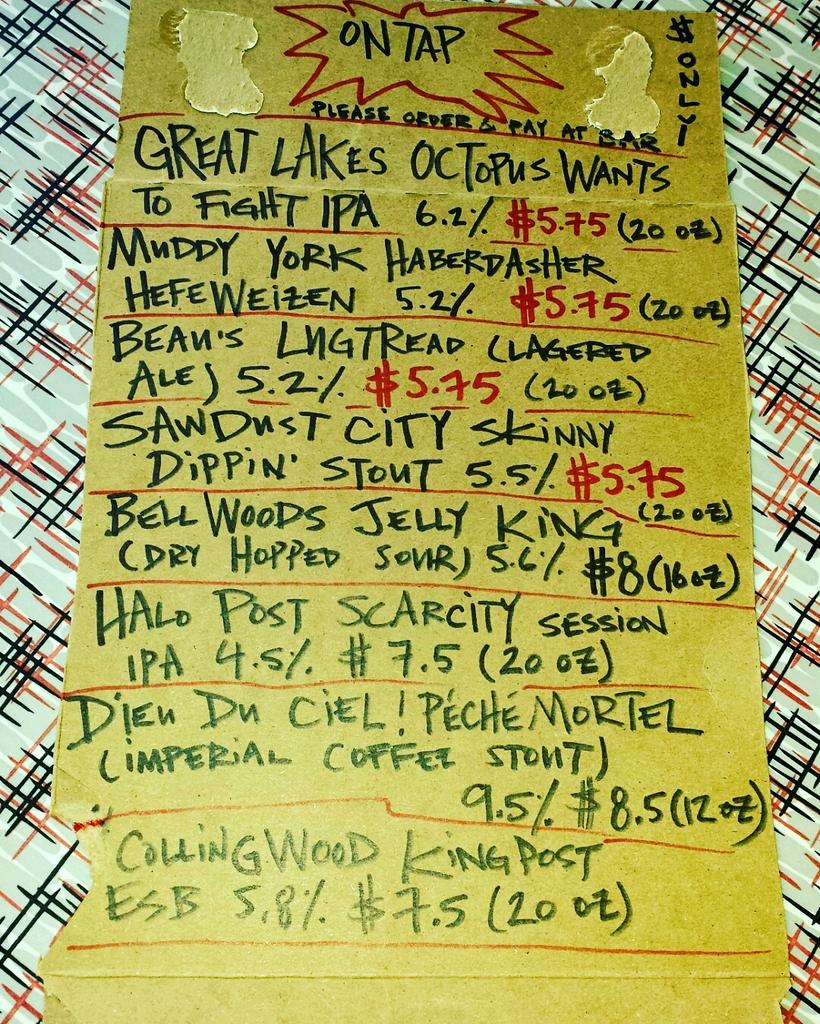 ON TAP
$ ONLY
PLEASE ORDER & PAY AT BAR
GREAT LAKES OCTOPUS WANTS
TO FIGHT IPA 6.2% $5.75 (20 oz)
MUDDY YORK HABERDASHER
HEFEWEIZEN 5.2% $5.75 (20 oz)
BEAU'S LUGTREAD (LAGERED
ALE) 5.2% $5.75 (20 oz)
SAWDUST CITY SKINNY
DIPPIN' STOUT 5.5% $5.75
(20 oz)
BELLWOODS JELLY KING
(DRY HOPPED SOUR) 5.6% $8 (16 oz)
HALO POST SCARCITY SESSION
IPA 4.5% $7.5 (20 oz)
DIEU DU CIEL! PÉCHÉ MORTEL
(IMPERIAL COFFEE STOUT)
9.5% $8.5 (12 oz)
COLLINGWOOD KINGPOST
ESB 5.8% $7.5 (20 oz)